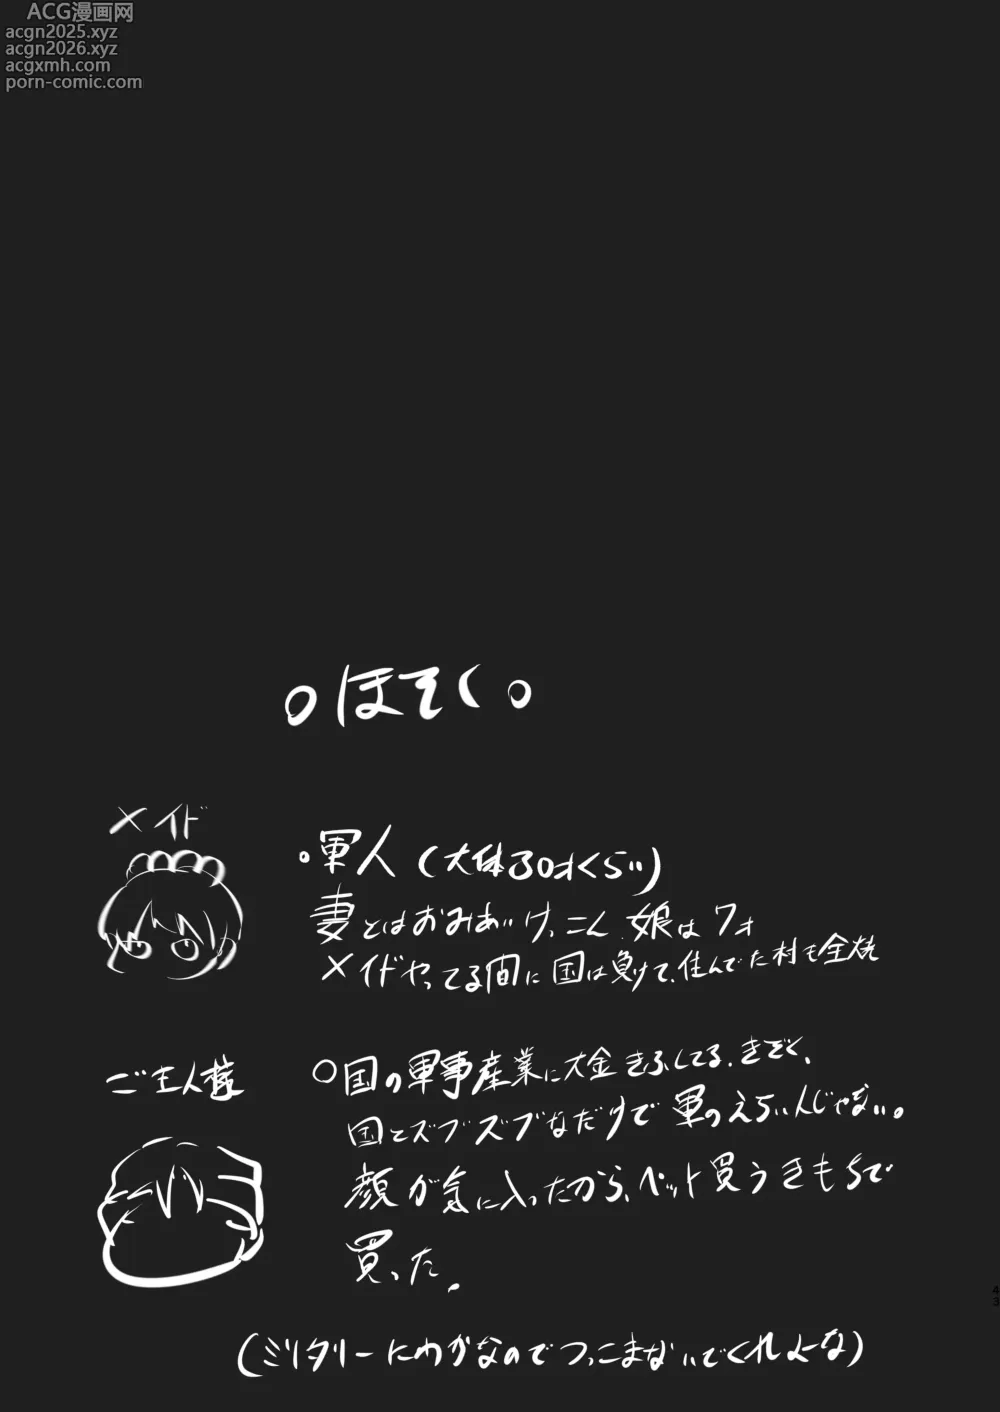 ACG漫画网
acgn2025.xyz
acgn2026.xyz
acgxmh.com
porn-comic.com
。ほそく。
メイド
・軍人(大体30才くらい)
妻とはおみあいけっこん、娘は7才
メイドやってる間に国は負けて、住んでた村も全焼
ご主人様
○国の軍事産業に大金きふしてる、きぞく、
国とズブズブなだけで軍のえらい人じゃない。
顔が気に入ったから、ペット買うきもちで
買った。
(ミリタリーにわかなのでつっこまないでくれよな)
43